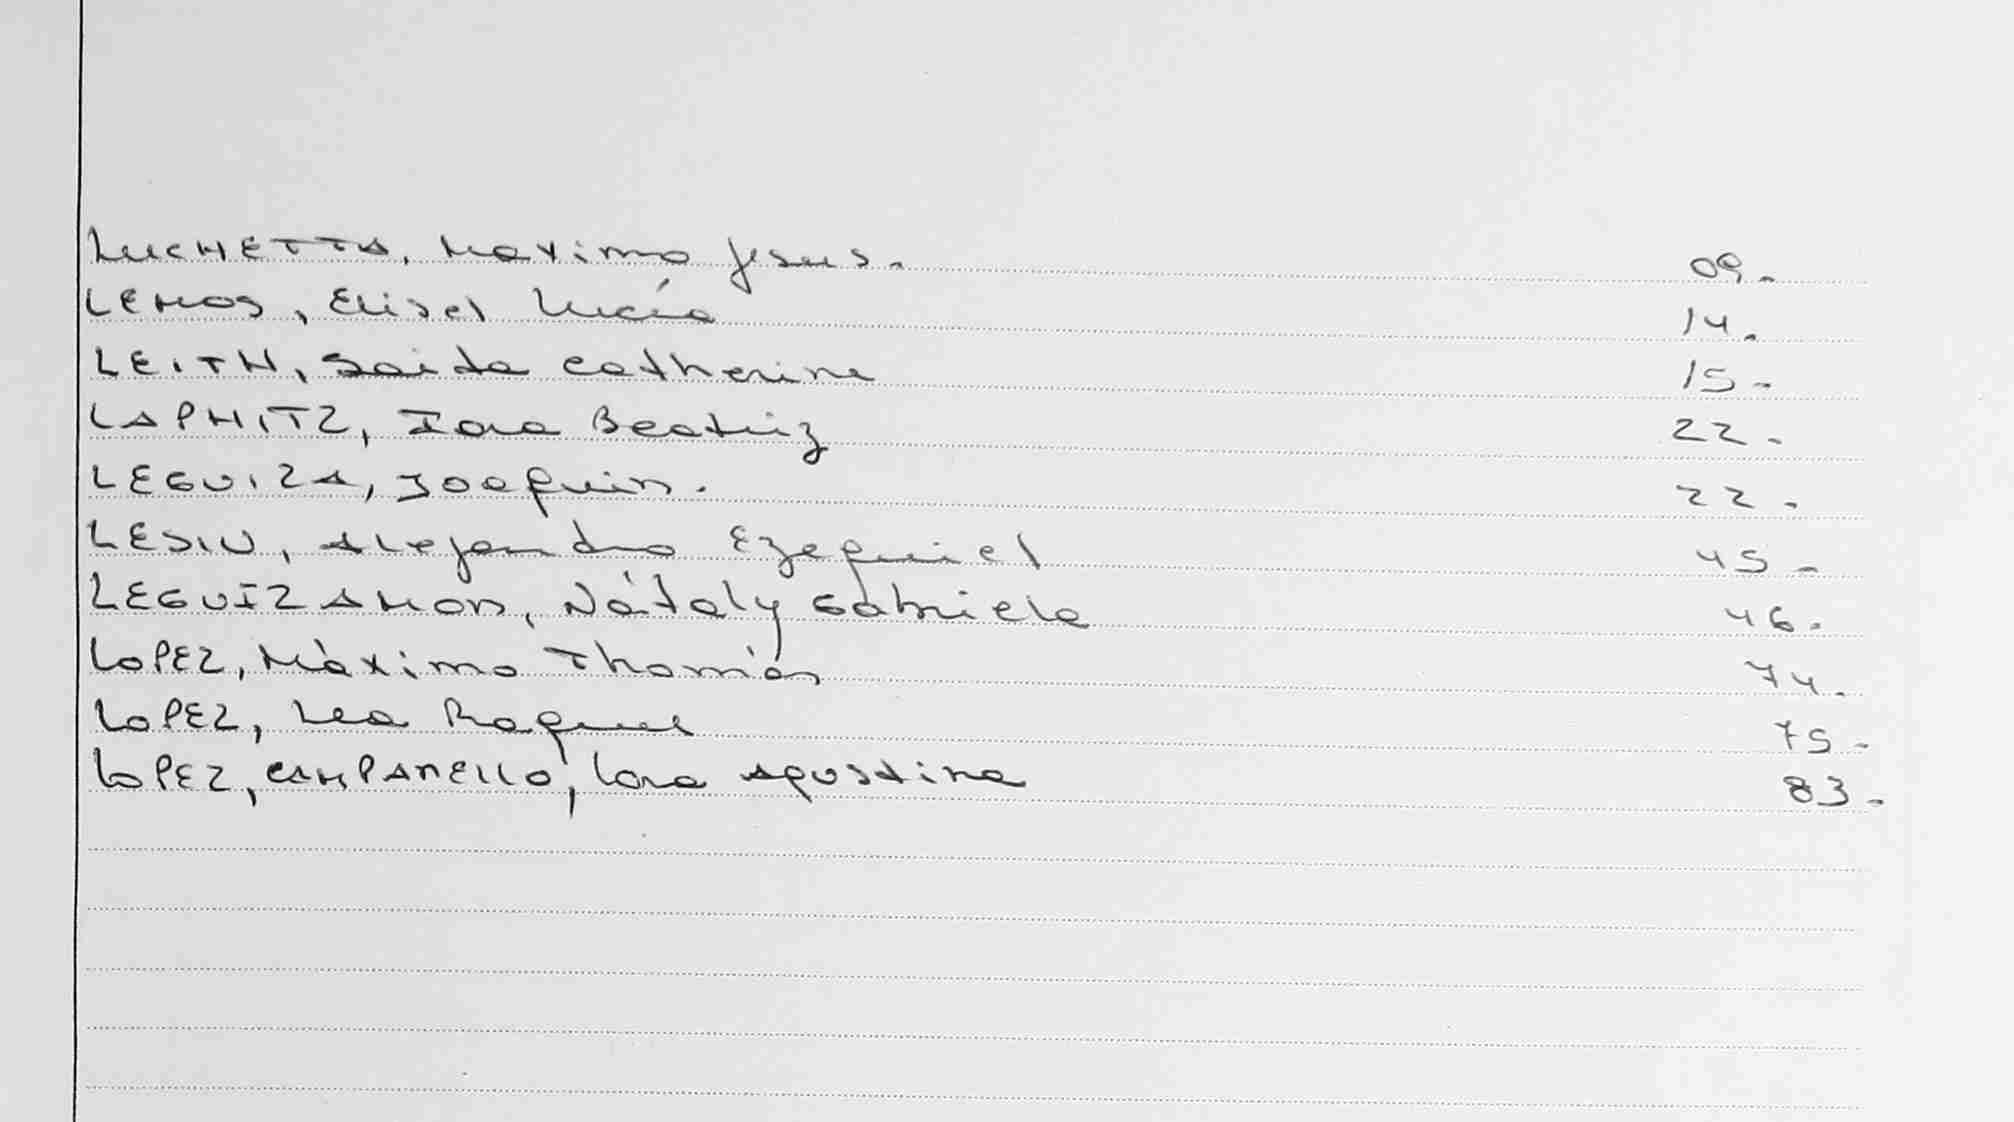 LUCHETTA, Maximo Jesus. 09.-
LEMOS, Elisel Lucía 14.
LEITH, Saida Catherine 15-
LAPHITZ, Iara Beatriz 22-
LEGUIZA, Joaquin. 22-
LESIU, Alejandro Ezequiel 45-
LEGUIZAMON, Nátaly Gabriela 46.
LOPEZ, Màximo Thomás 74.
LOPEZ, Lea Raquel 75-
LOPEZ, CAMPANELLO, Lara Agustina 83-